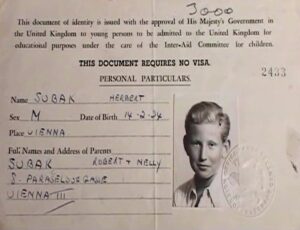 3000
This document of identity is issued with the approval of His Majesty's Government in
the United Kingdom to young persons to be admitted to the United Kingdom for
educational purposes under the care of the Inter-Aid Committee for children.
THIS DOCUMENT REQUIRES NO VISA.
PERSONAL PARTICULARS.
2433
Name SUBAK HERBERT
Sex M Date of Birth 14-2-24
Place VIENNA
Full Names and Address of Parents
SUBAK ROBERT + NELLY
VIENNA III